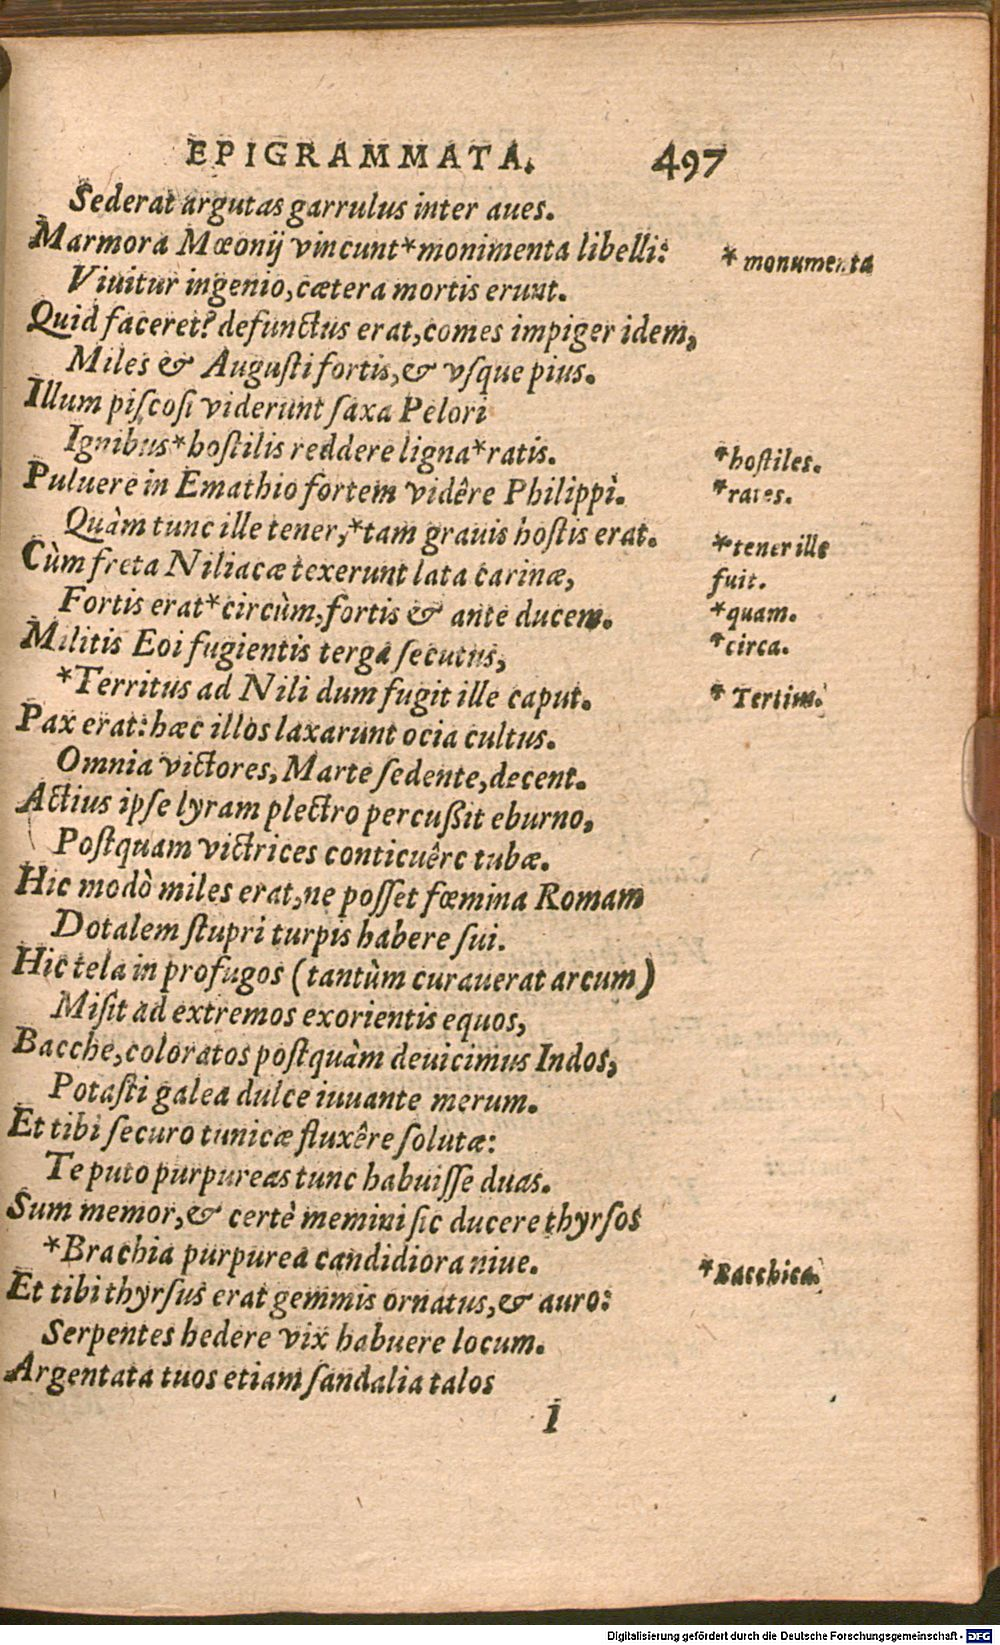 EPIGRAMMATA. 497
Sederat argutas garrulus inter aues.
Marmora Mæonij vincunt*monimenta libelli:
* monumenta
Viuitur ingenio, cætera mortis erunt.
Quid faceret? defunctus erat, comes impiger idem,
Miles & Augusti fortis, & vsque pius.
Illum piscosi viderunt saxa Pelori
Ignibus*hostilis reddere ligna*ratis.
*hostiles.
*rates.
Puluere in Emathio fortem vidêre Philippì.
Quàm tunc ille tener,*tam grauis hostis erat.
*tener ille
fuit.
*quam.
Cùm freta Niliacæ texerunt lata carinæ,
Fortis erat*circùm, fortis & ante ducem.
*circa.
Militis Eoi fugientis terga secutus,
*Territus ad Nili dum fugit ille caput.
* Tertius.
Pax erat: hæc illos laxarunt ocia cultus.
Omnia victores, Marte sedente, decent.
Actius ipse lyram plectro percußit eburno,
Postquam victrices conticuêre tubæ.
Hic modò miles erat, ne posset fœmina Romam
Dotalem stupri turpis habere sui.
Hic tela in profugos (tantùm curauerat arcum)
Misit ad extremos exorientis equos,
Bacche, coloratos postquàm deuicimus Indos,
Potasti galea dulce iuuante merum.
Et tibi securo tunicæ fluxêre solutæ:
Te puto purpureas tunc habuisse duas.
Sum memor, & certè memini sic ducere thyrsos
*Brachia purpurea candidiora niue.
*Bacchica.
Et tibi thyrsus erat gemmis ornatus, & auro:
Serpentes hedere vix habuere locum.
Argentata tuos etiam sandalia talos
I
Digitalisierung gefördert durch die Deutsche Forschungsgemeinschaft - DFG